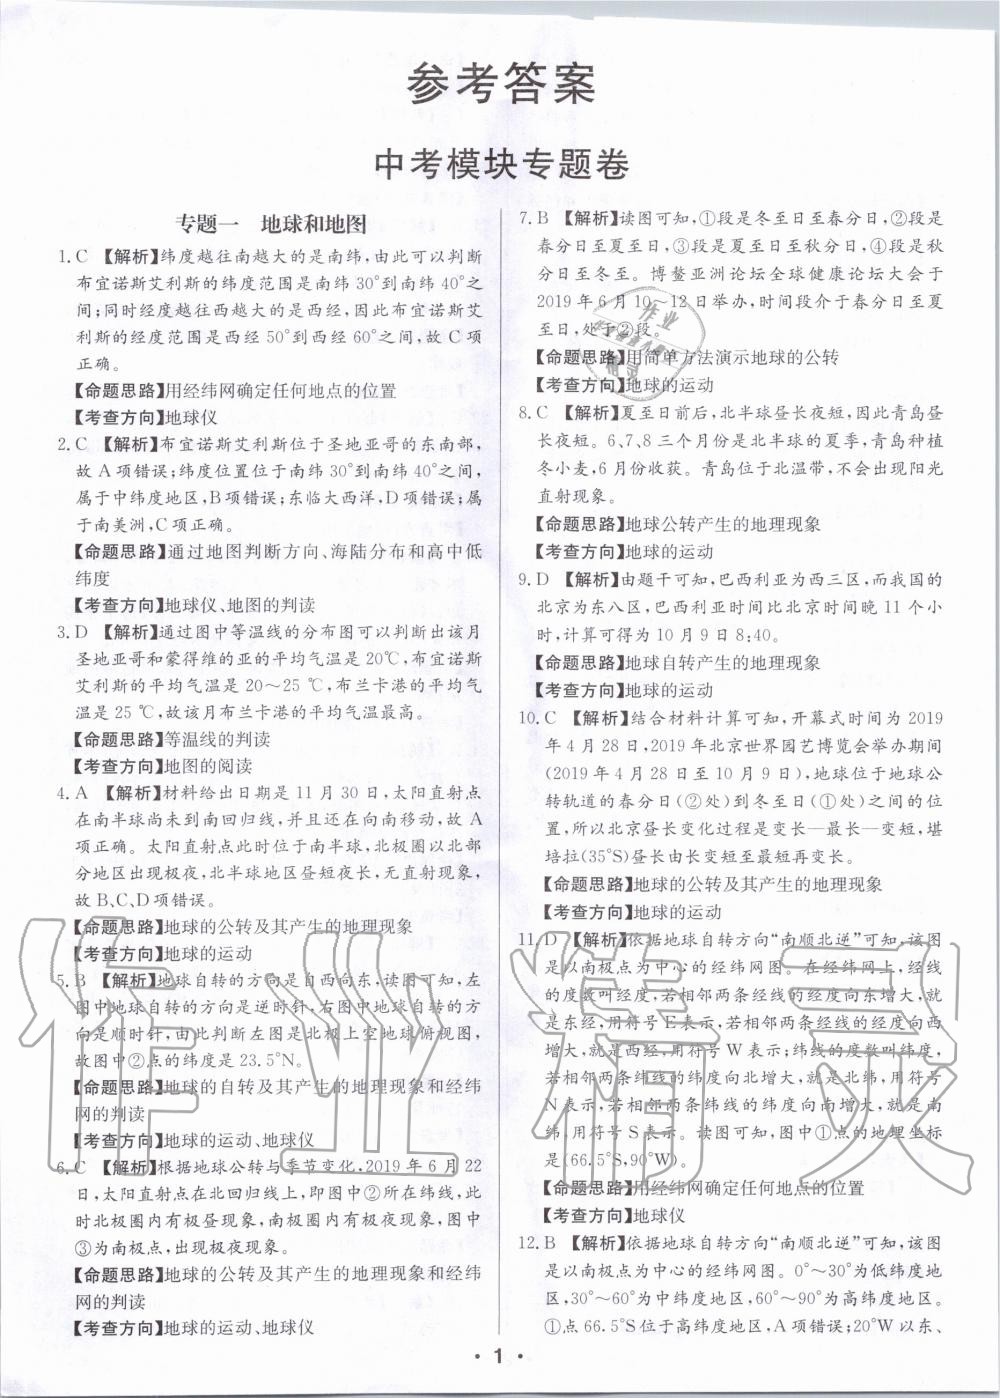 参考答案
中考模块专题卷
专题一 地球和地图
1. C 【解析】纬度越往南越大的是南纬,由此可以判断
布宜诺斯艾利斯的纬度范围是南纬 30°到南纬 40°之
间;同时经度越往西越大的是西经,因此布宜诺斯艾
利斯的经度范围是西经 50°到西经 60°之间,故 C 项
正确。
【命题思路】用经纬网确定任何地点的位置
【考查方向】地球仪
2. C 【解析】布宜诺斯艾利斯位于圣地亚哥的东南部,
故 A 项错误;纬度位置位于南纬 30°到南纬 40°之间,
属于中纬度地区,B 项错误;东临大西洋,D 项错误;属
于南美洲,C 项正确。
【命题思路】通过地图判断方向、海陆分布和高中低
纬度
【考查方向】地球仪、地图的判读
3. D 【解析】通过图中等温线的分布图可以判断出该月
圣地亚哥和蒙得维的亚的平均气温是 20℃,布宜诺斯
艾利斯的平均气温是 20～25 ℃,布兰卡港的平均气
温是 25 ℃,故该月布兰卡港的平均气温最高。
【命题思路】等温线的判读
【考查方向】地图的阅读
4. A 【解析】材料给出日期是 11 月 30 日,太阳直射点
在南半球尚未到南回归线,并且还在向南移动,故 A
项正确。太阳直射点此时位于南半球,北极圈以北部
分地区出现极夜,北半球地区昼短夜长,无直射现象,
故 B、C、D 项错误。
【命题思路】地球的公转及其产生的地理现象
【考查方向】地球的运动
5. B 【解析】地球自转的方向是自西向东,读图可知,左
图中地球自转的方向是逆时针,右图中地球自转的方
向是顺时针,由此判断左图是北极上空地球俯视图,
故图中②点的纬度是 23.5°N。
【命题思路】地球的自转及其产生的地理现象和经纬
网的判读
【考查方向】地球的运动、地球仪
6. C 【解析】根据地球公转与季节变化,2019 年 6 月 22
日,太阳直射点在北回归线上,即图中②所在纬线,此
时北极圈内有极昼现象,南极圈内有极夜现象,图中
③为南极点,出现极夜现象。
【命题思路】地球的公转及其产生的地理现象和经纬
网的判读
【考查方向】地球的运动、地球仪
7. B 【解析】读图可知,①段是冬至日至春分日,②段是
春分日至夏至日,③段是夏至日至秋分日,④段是秋
分日至冬至。博鳌亚洲论坛全球健康论坛大会于
2019 年 6 月 10～12 日举办,时间段介于春分日至夏
至日,处于②段。
【命题思路】用简单方法演示地球的公转
【考查方向】地球的运动
8. C 【解析】夏至日前后,北半球昼长夜短,因此青岛昼
长夜短。6、7、8 三个月份是北半球的夏季,青岛种植
冬小麦,6 月份收获。青岛位于北温带,不会出现阳光
直射现象。
【命题思路】地球公转产生的地理现象
【考查方向】地球的运动
9. D 【解析】由题干可知,巴西利亚为西三区,而我国的
北京为东八区,巴西利亚时间比北京时间晚 11 个小
时,计算可得为 10 月 9 日 8:40。
【命题思路】地球自转产生的地理现象
【考查方向】地球的运动
10. C 【解析】结合材料计算可知,开幕式时间为 2019
年 4 月 28 日,2019 年北京世界园艺博览会举办期间
(2019 年 4 月 28 日至 10 月 9 日),地球位于地球公
转轨道的春分日(②处)到冬至日(①处)之间的位
置,所以北京昼长变化过程是变长—最长—变短,堪
培拉(35°S)昼长由长变短至最短再变长。
【命题思路】地球的公转及其产生的地理现象
【考查方向】地球的运动
11. D 【解析】依据地球自转方向“南顺北逆”可知,该图
是以南极点为中心的经纬网图。在经纬网上,经线
的度数叫经度,若相邻两条经线的经度向东增大,就
是东经,用符号 E 表示,若相邻两条经线的经度向西
增大,就是西经,用符号 W 表示;纬线的度数叫纬度,
若相邻两条纬线的纬度向北增大,就是北纬,用符号
N 表示,若相邻两条纬线的纬度向南增大,就是南
纬,用符号 S 表示。读图可知,图中①点的地理坐标
是(66.5°S,90°W)。
【命题思路】用经纬网确定任何地点的位置
【考查方向】地球仪
12. B 【解析】依据地球自转方向“南顺北逆”可知,该图
是以南极点为中心的经纬网图。0°～30°为低纬度地
区,30°～60°为中纬度地区,60°～90°为高纬度地区。
①点 66.5°S位于高纬度地区,A 项错误;20°W 以东、
• 1 •
作业精灵